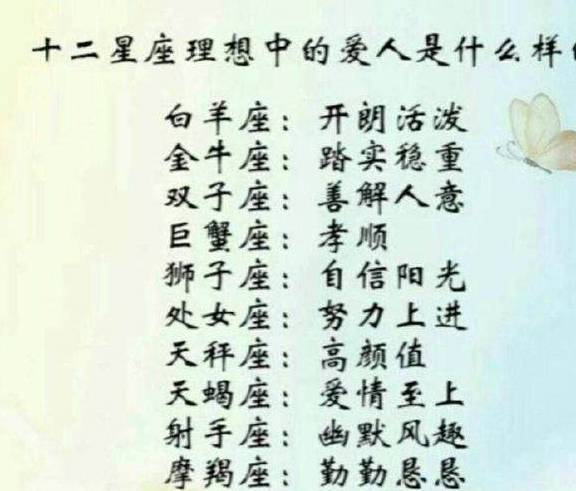 十二星座理想中的爱人是什么样
白羊座：开朗活泼
金牛座：踏实稳重
双子座：善解人意
巨蟹座：孝顺
狮子座：自信阳光
处女座：努力上进
天秤座：高颜值
天蝎座：爱情至上
射手座：幽默风趣
摩羯座：勤勤恳恳